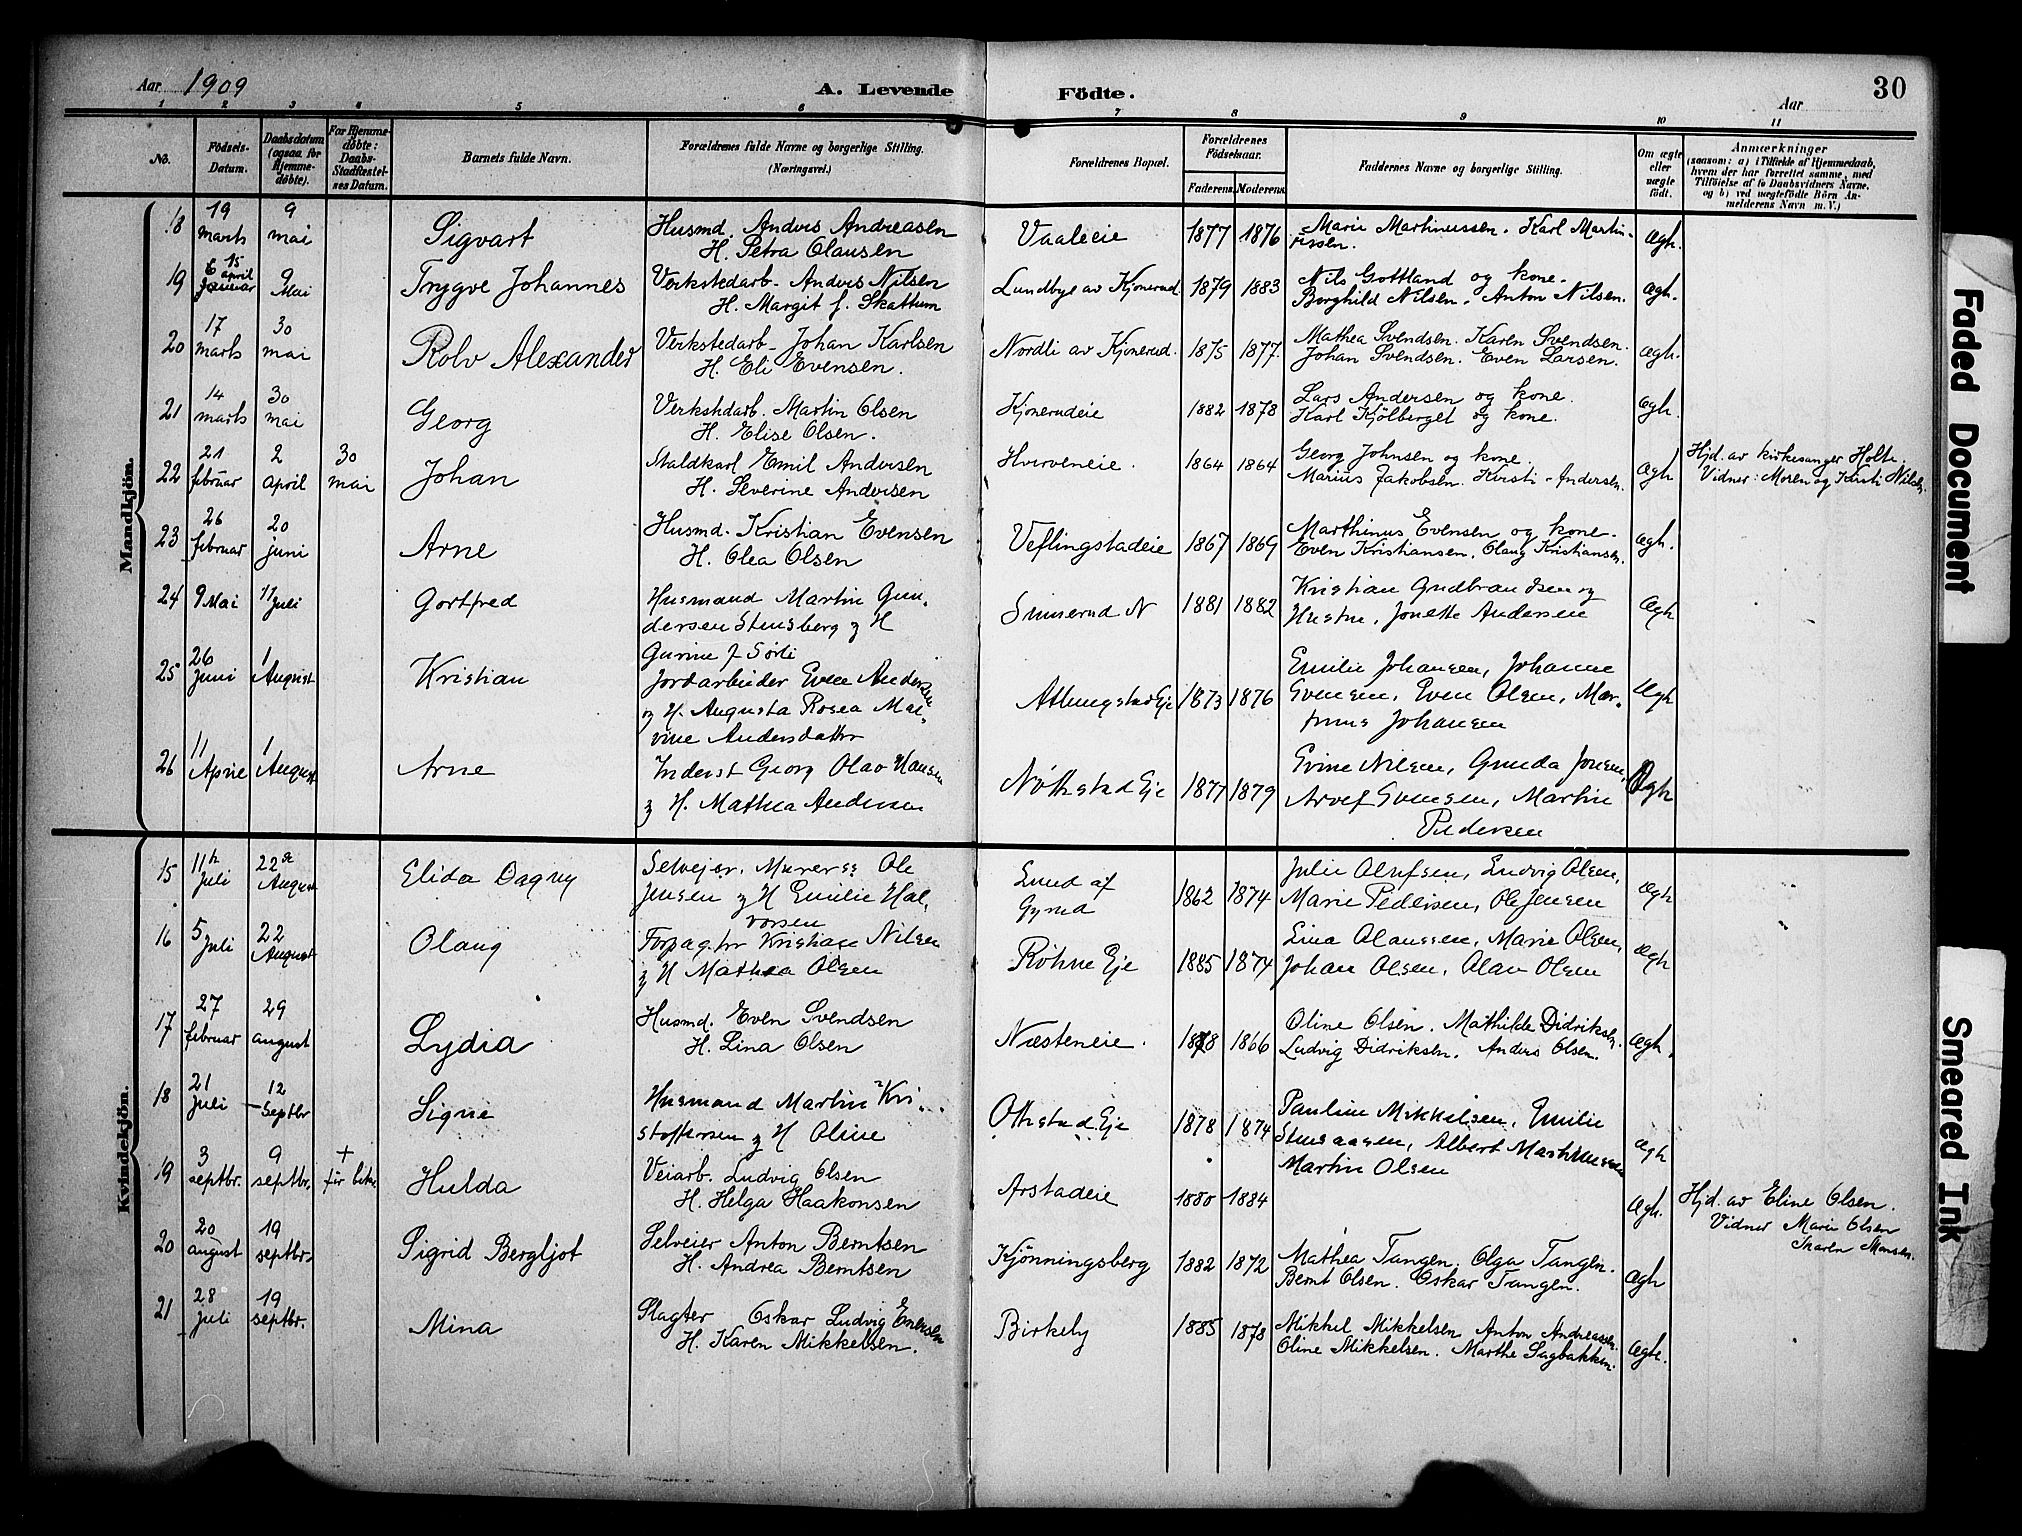 Aar 1909
A. Levende Födte.
Aar
30
1 2 3 4 5 6 7 8 9 10 11
No.
Födsels-Datum.
Daabsdatum (ogsaa for Hjemmedöbte).
For Hjemmedöbte: Daabs-Stadfæstelses Datum.
Barnets fulde Navn.
Forældrenes fulde Navne og borgerlige Stilling. (Næringsvei.)
Forældrenes Bopæl.
Forældrenes Födselsaar.
Faderens. Moderens.
Faddernes Navne og borgerlige Stilling.
Om ægte eller uægte födt.
Anmærkninger
(saasom: a) i Tilfælde af Hjemmedaab, hvem der har forrettet samme, med Tilföielse af to Daabsvidners Navne, og b) ved uægtefödte Börn Anmelderens Navn m. V.)
Mandkjön.
18 19 marts 9 mai Sigvart Husmd. Anders Andreasen Vaaleie 1877 1876 Marie Martinussen. Karl Martin- ægh.
H. Petra Olausen ussen.
19 15 april 9 Mai Trygve Johannes Verkstedarb. Anders Nilsen Lundbye av Kjonerud 1879 1883 Nils Gottland og kone. ægh.
H. Margit f. Skattum Borghild Nilsen. Anton Nilsen.
20 17 marts 30 mai Rolv Alexander Verkstedarb. Johan Karlsen Nordli av Kjonerud. 1875 1877 Mathea Svendsen. Karen Svendsen. ægh.
H. Eli Evensen. Johan Svendsen. Even Larsen.
21 14 marts 30 mai Georg Verkstdarb. Martin Olsen Kjonerudeie 1882 1878 Lars Andersen og kone. ægh.
H. Elise Olsen. Karl Kjölberget og kone.
22 21 februar 2 april 30 mai Johan Staldkarl Emil Andersen Hverveneie. 1864 1864 Georg Johnsen og kone. ægh Hjd. av kirkesanger Holte.
H. Severine Andersen Marius Jakobsen. Kirsti Andersen. Vidner: Moren og Kirsti Nilsen.
23 26 februar 20 juni Arne Husmd. Kristian Evensen Veflingstadeie 1867 1869 Marthinus Evensen og kone. ægh.
H. Olea Olsen Even Kristiansen. Olaug Kristiansen.
24 9 Mai 11 Juli Gottfred Husmand Martin Gun- Sinnerud N 1881 1882 Kristian Gudbrandsen og Ægh
dersen Stensberg og H Hustru, Jonette Andersen
Gurine f Sørli
25 26 Juni 1 August Kristian Jordarbeider Even Andersen Attungstad Eje 1873 1876 Emilie Johansen, Johanne Ægh
og H. Augusta Rosea Mal- Svensen, Even Olsen, Mar-
vine Andersdatter tinus Johansen
26 11 April 1 August Arne Inderst Georg Olav Hansen Nøttestad Eje 1877 1879 Evine Nilsen, Gunda Jonsen, Ægh
og H. Mathea Andersen Arvef Svensen, Martin
Pedersen
Kvindekjön.
15 11te Juli 22de August Elida Dagny Selvejer, Murer Ole Lund af 1862 1874 Julie Olufsen, Ludvig Olsen, Ægh
Jensen og H Emilie Hal- Marie Pedersen, Ole Jensen
vorsen
16 5 Juli 22 August Olaug Forpagter Kristian Nilsen Røhne Eje 1885 1874 Lina Olaussen, Marie Olsen, Ægh
og H Mathea Olsen Johan Olsen, Olav Olsen
17 27 februar 29 august Lydia Husmd. Even Svendsen Næsteneie. 1878 1866 Oline Olsen. Mathilde Didriksen. ægh.
H. Lina Olsen Ludvig Didriksen. Anders Olsen.
18 21 Juli 12 Septbr Signe Husmand Martin Kri- Ottestad Eje 1878 1874 Pauline Mikkelsen, Emilie ægh
stoffersen og H Oline Stensaasen, Albert Martinussen
Martin Olsen
19 3 septbr. 9 septbr. + Hulda Veiarb. Ludvig Olsen Arstadeie 1880 1884 ægh. Hjd. av Eline Olsen.
H. Helga Haakonsen Vidner Marie Olsen
Karen Monsen.
20 20 august 19 septbr. Sigrid Bergljot Selveier Anton Berntsen Kjönningsberg 1882 1872 Mathea Tangen. Olga Tangen. ægh
H. Andrea Berntsen Bernt Olsen. Oskar Tangen.
21 28 Juli 19 septbr. Mina Slagter Oskar Ludvig Evensen Birkely 1885 1878 Mikkel Mikkelsen Anton Andreassen. ægte.
H. Karen Mikkelsen. Oline Mikkelsen. Marthe Sagbakken.
Faded Document
Smeared Ink